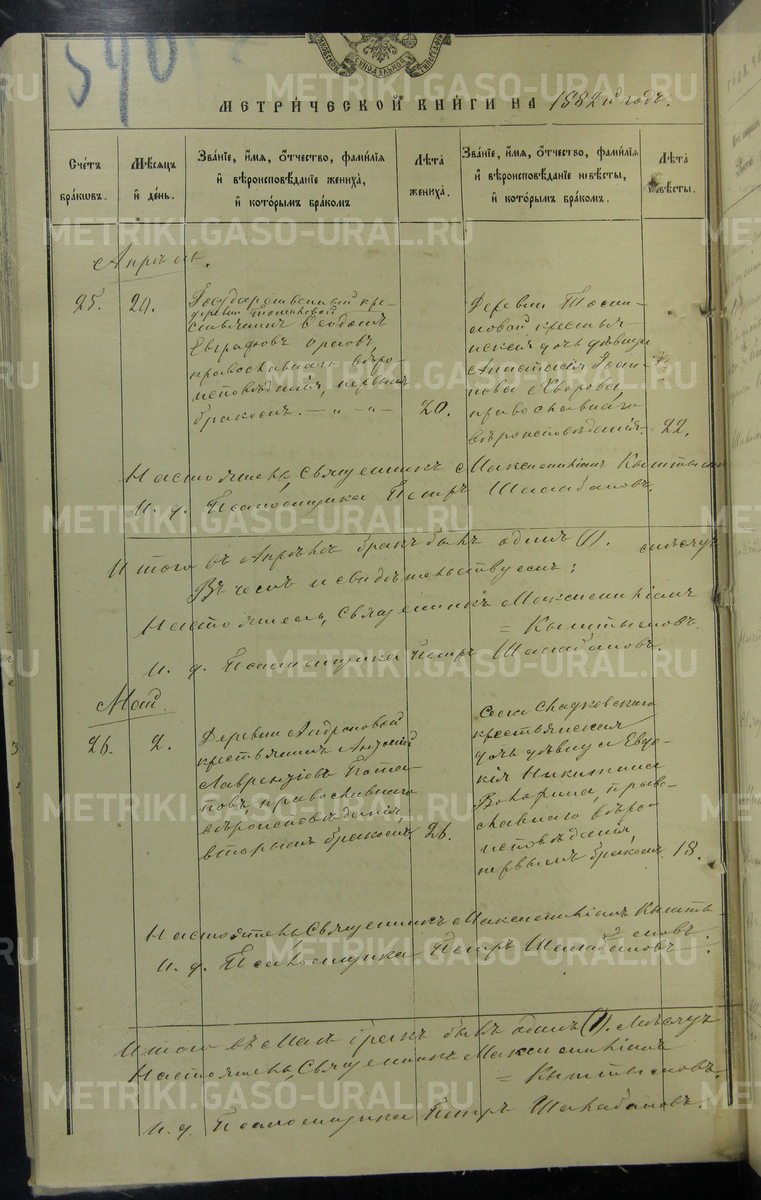 590
МЕТРИ́ЧЕСКОЙ КНИ́ГИ НА 1882й годъ.
Сче́тъ бра́ковъ.
Мѣ́сяцъ и де́нь.
Зва́нїе, и́мя, о́тчество, фами́лїя и вѣроисповѣ́данїе жениха́, и кото́рымъ бра́комъ
Лѣ́та жениха́.
Зва́нїе, и́мя, о́тчество, фами́лїя и вѣроисповѣ́данїе невѣ́сты, и кото́рымъ бра́комъ.
Лѣ́та невѣ́сты.
Апрѣль.
25.
20.
Государственный кре-
деревни
стьянинъ Ѳеодотъ
Евграфовъ Орловъ,
православнаго вѣро-
исповѣданія, первымъ
бракомъ. — „ — „ —
20.
Деревни
крестьян-
ская дочь дѣвица
Анастасія
Хворова,
православнаго
вѣроисповѣданія.
22.
Настоятель, Священникъ Максимиліанъ
И. д. Псаломщика Петръ Шалабановъ.
Итого въ Апрѣлѣ бракъ былъ одинъ (1).
Въ чемъ и свидѣтельствуемъ:
Настоятель, Священникъ Максимиліанъ
= Кыштымовъ.
И. д. Псаломщика Петръ Шалабановъ.
Май.
26.
2.
Деревни Андроновой
крестьянинъ
Лаврентіевъ Пота-
повъ, православнаго
вѣроисповѣданія,
вторымъ бракомъ.
26.
Села Сладковскаго
крестьянская
дочь дѣвица Евдо-
кія Никитина
православнаго вѣро-
исповѣданія,
первымъ бракомъ.
18.
Настоятель, Священникъ Максимиліанъ Кышты-
= мовъ.
И. д. Псаломщика Петръ Шалабановъ.
Итого въ Маѣ бракъ былъ одинъ (1).
Настоятель, Священникъ Максимиліанъ
= Кыштымовъ.
И. д. Псаломщика Петръ Шалабановъ.
METRIKI.GASO-URAL.RU